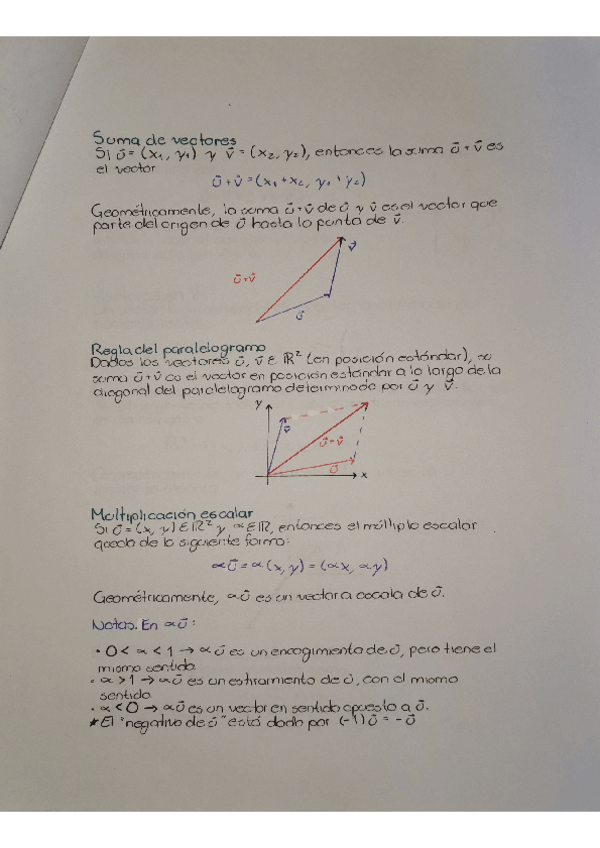 Suma de vectores
Si ū = (x₁, y₁) y v̄ = (x₂, y₂), entonces la suma ū + v̄ es
el vector
ū + v̄ = (x₁+x₂, y₁+y₂)
Geométricamente, la suma ū+v̄ de ū y v̄ es el vector que
parte del origen de ū hasta la punta de v̄.
v̄
ū+v̄
ū
Regla del paralelogramo
Dados los vectores ū, v̄ ∈ ℝ² (en posición estándar), su
suma ū+v̄ es el vector en posición estándar a lo largo de la
diagonal del paralelogramo determinado por ū y v̄.
y
v̄
ū+v̄
ū
x
Multiplicación escalar
Si ū = (x, y) ∈ ℝ² y α ∈ ℝ, entonces el múltiplo escalar
queda de la siguiente forma:
αū = α(x, y) = (αx, αy)
Geométricamente, αū es un vector a escala de ū.
Notas. En αū:
• 0 < α < 1 → αū es un encogimiento de ū, pero tiene el
mismo sentido.
• α > 1 → αū es un estiramiento de ū, con el mismo
sentido.
• α < 0 → αū es un vector en sentido opuesto a ū.
* El "negativo de ū" está dado por (-1)ū = -ū